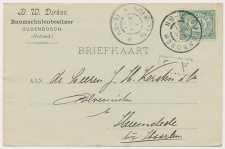 B. W. Dirken
Baumschulenbesitzer
OUDENBOSCH
(Holland).
BRIEFKAART
AAN de Heeren J. H. Kersten & Zn
Bloemisten
Heemstede
bij Haarlem